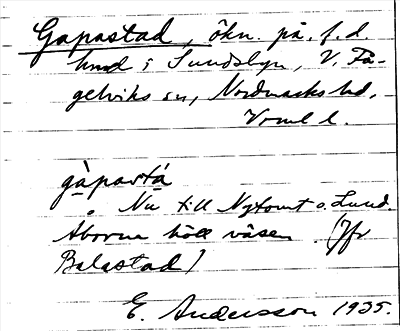 Gapastad, ökn. på f.d.
lund i Sundsbyn, V. Få-
gelviks sn, Nordmarks hd,
Värml l.
gàpastá
Nu till Nytomt o. Lund.
Åborna höll väsen. (Jfr
Balastad)
E. Andersson 1935.